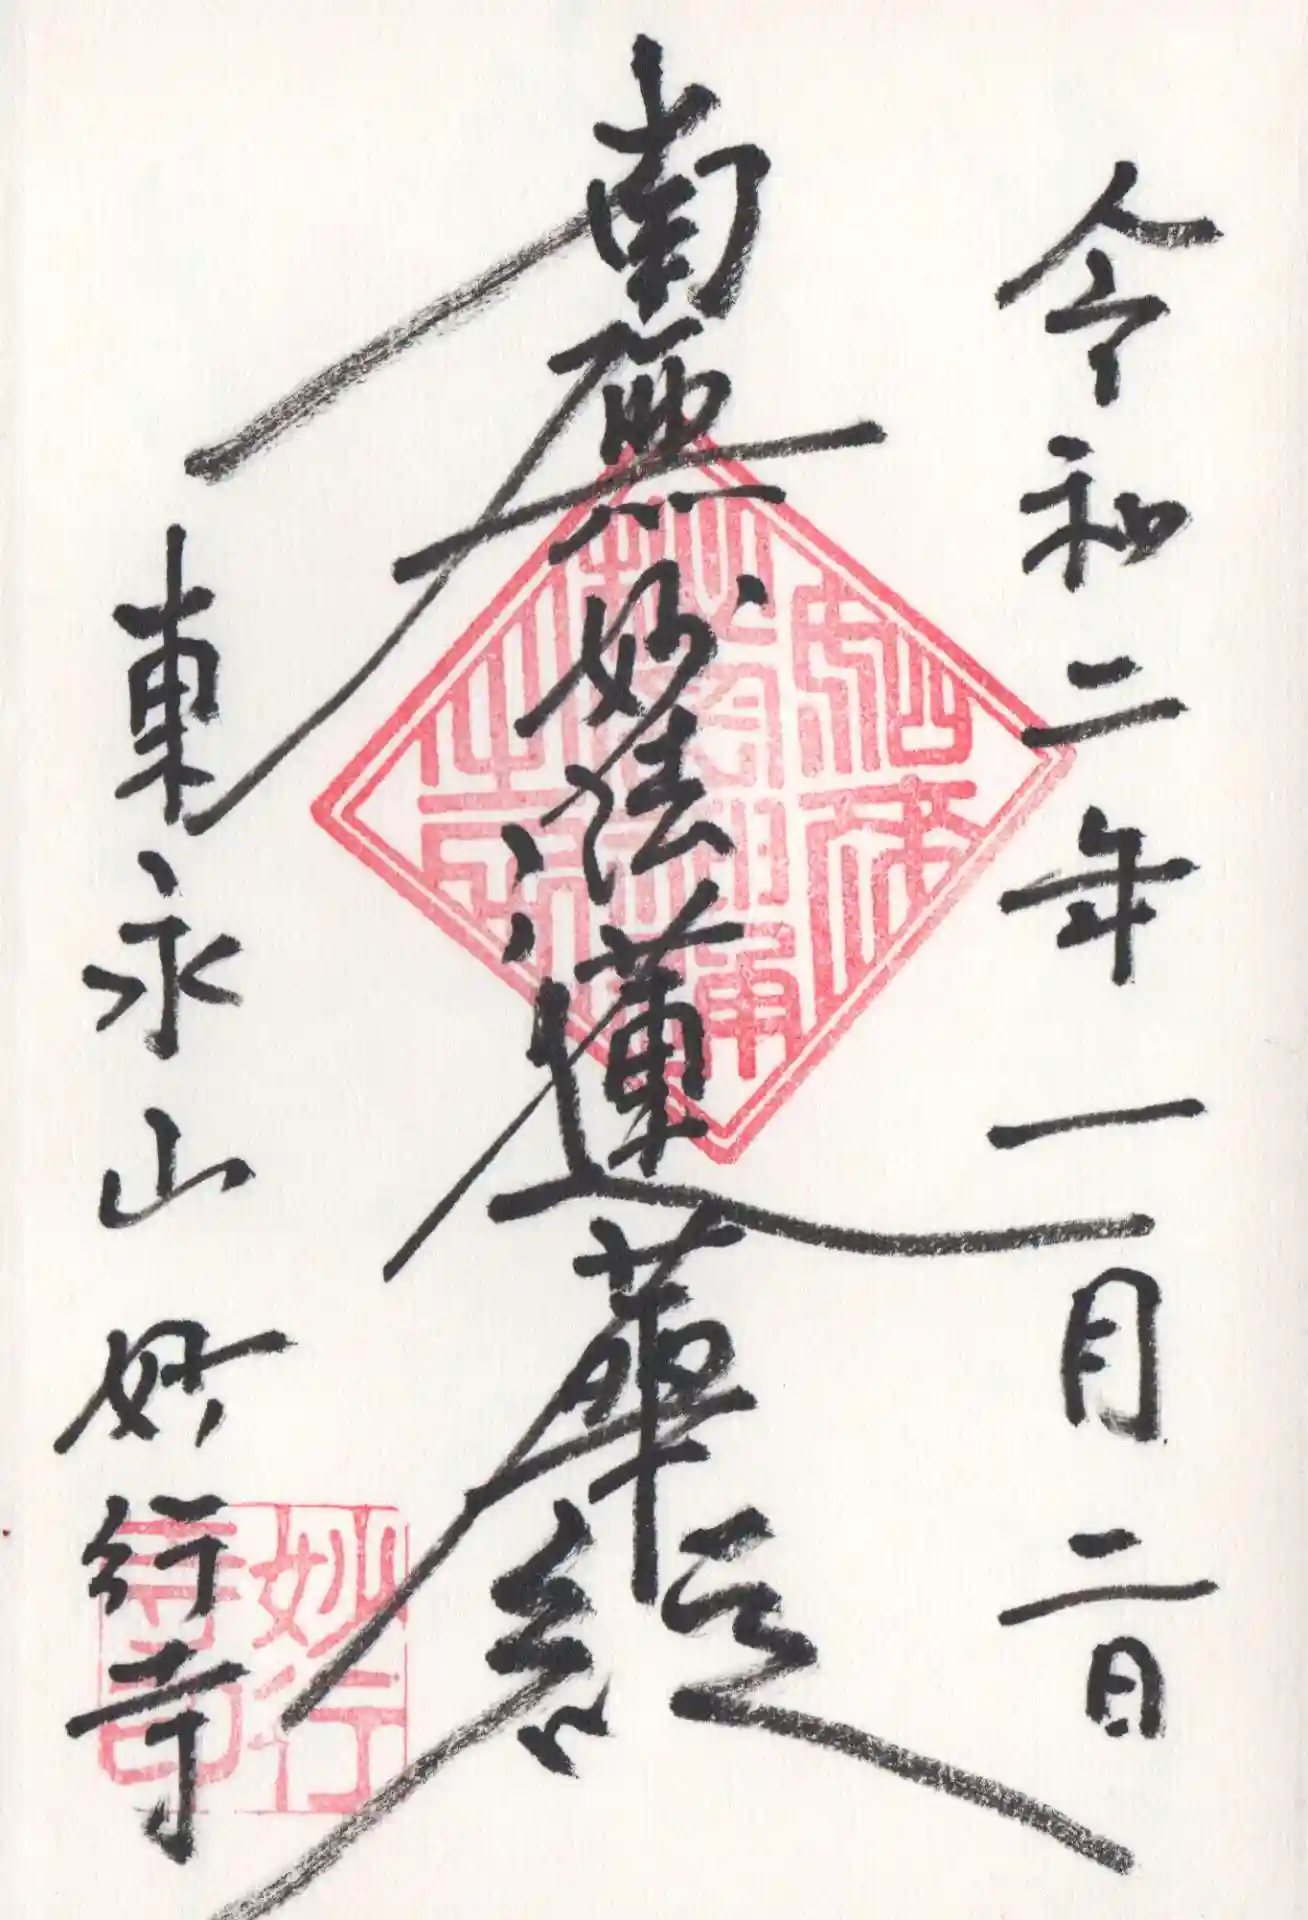 令和二年一月二日
南無妙法蓮華経
東永山 妙行寺
妙行寺印